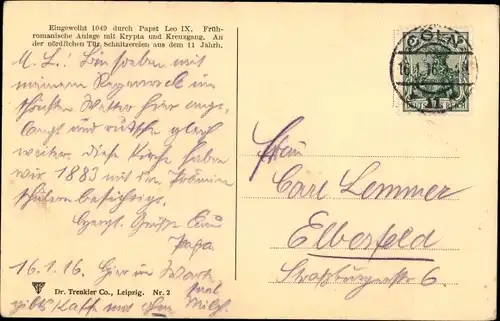 Eingeweiht 1049 durch Papst Leo IX. Früh-
romanische Anlage mit Krypta und Kreuzgang. An
der nördlichen Tür Schnitzereien aus dem 11 Jahrh.
M. L.! Bin soeben mit
meinem Regenrock im
schönsten Wetter hier ange-
langt und rutsche gleich
weiter. Diese Kirche haben
wir 1883 mit den
schülern besichtigt.
Herzl. Grüsse Euer
Papa.
16.1.16. Hier im
gibts Kaffe mit ohne Milch.
Dr. Trenkler Co., Leipzig. Nr. 2
CÖLN
16.1.16
DEUTSCHES REICH
Frau
Carl Lemmer
Elberfeld
Straßburgerstr 6.